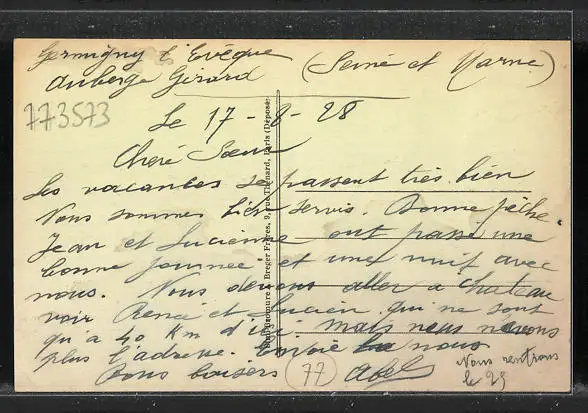 Germigny l'Evêque
(Seine et Marne)
Auberge Girard
773573
Le 17 - 8 - 28
Chère Sœur
Les vacances se passent très bien
Nous sommes bien servis. Bonne pêche.
Jean et Lucienne ont passé une
bonne journeé et une nuit avec
nous. Nous devons aller a Chateau
voir René et Lucien, qui ne sont
qu'a 40 Km d'ici. mais nous n'avons
plus l'adresse. Envoie la nous
Bons baisers
77
Abel
Nous rentrons
le 29
Breger Frères, 9, rue Thénard, Paris (Déposé)